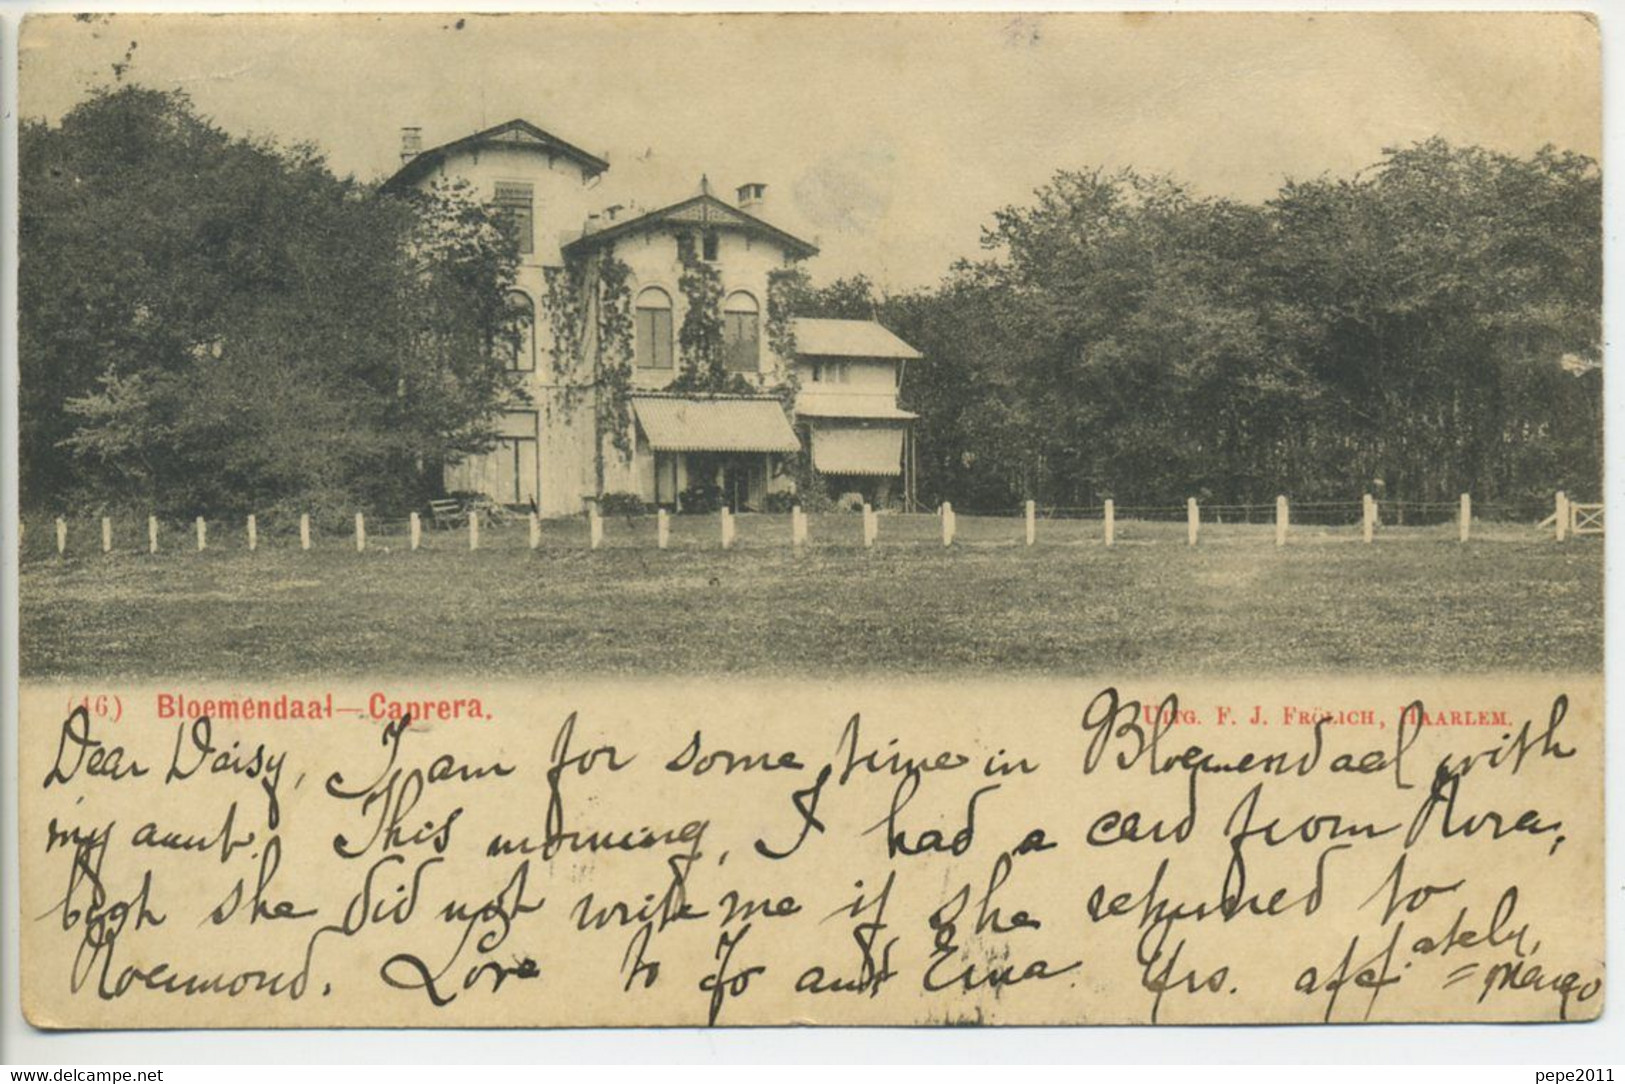 (46) Bloemendaal—Caprera.
Uitg. F. J. Frölich, Haarlem.
Dear Daisy, I am for some time in Bloemendaal with
my aunt. This morning, I had a card from Nora,
she did not write me if she returned to
Roermond. Love to Jo and Yrs. affectately,
www.delcampe.net
pepe2011